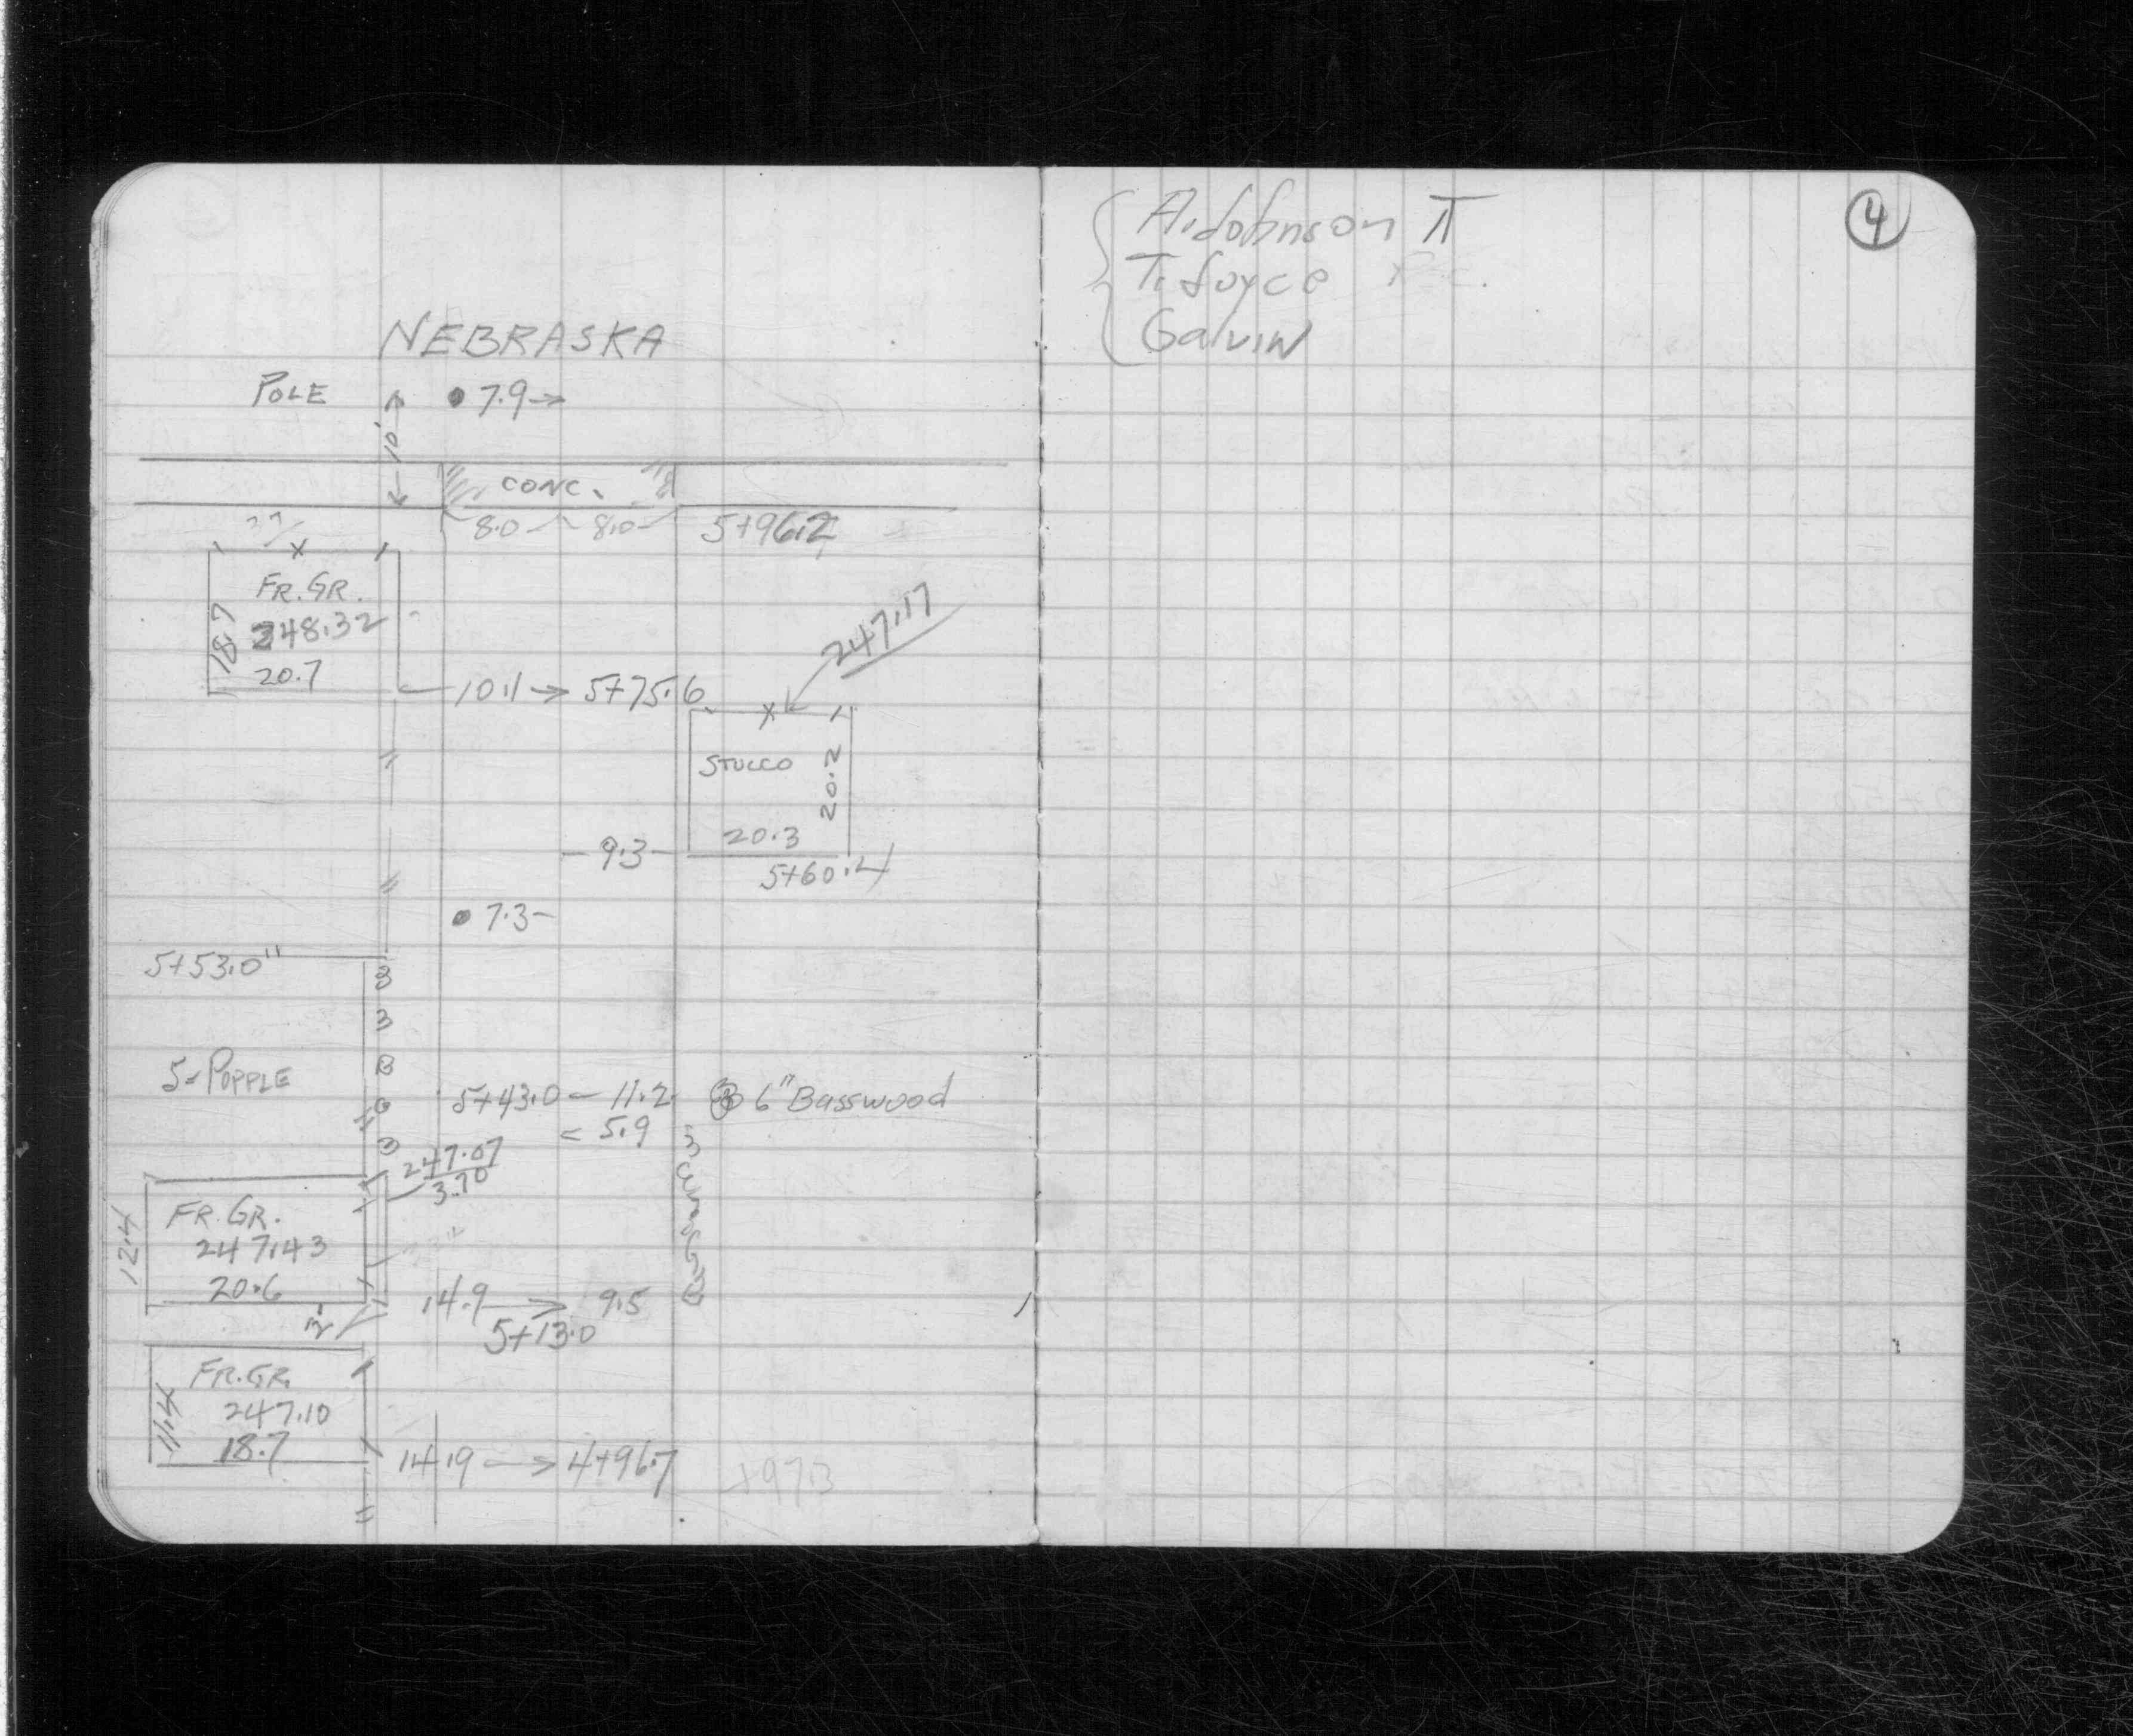 NEBRASKA
POLE
7.9→
10'
CONC.
8.0 8.0
5+96.2
FR. GR.
248.32
20.7
18.7
247.17
10.1 → 5+75.6
STUCCO
20.2
20.3
-9.3-
5+60.4
7.3-
5+53.0"
5-POPPLE
5+43.0 - 11.2 6" Basswood
= 5.9
247.07
3.70
FR. GR.
247.43
20.6
12.4
14.9 → 9.5
5+13.0
FR. GR.
247.10
18.7
11.4
14.9 → 4+96.7
+97.3
A. Johnson π
T. Joyce
Galvin
4